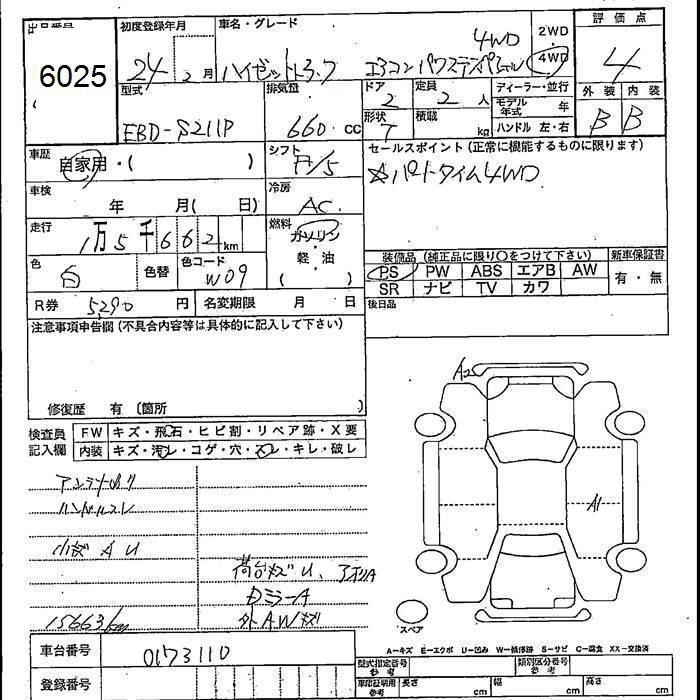 出品番号
6025
初度登録年月
24 2月
車名・グレード
ハイゼットトラック 4WD
エアコンパワステスペシャル
2WD
4WD
評価点
4
型式
EBD-S211P
排気量
660 cc
ドア
2
定員
2人
ディーラー・並行
モデル年式 年
ハンドル 左・右
形状
T
積載
kg
外装 内装
B B
車歴
自家用・( )
シフト
F/5
セールスポイント(正常に機能するものに限ります)
☆パートタイム4WD
車検
年 月( 日)
冷房
AC
走行
1万5千662km
燃料
ガソリン
軽・油
( )
色
白
色替
色コード
W09
装備品(純正品に限り○をつけて下さい)
新車保証書
PS PW ABS エアB AW
有・無
SR ナビ TV カワ
R券 5290円
名変期限 月 日
後日品
注意事項申告欄(不具合内容等は具体的に記入して下さい)
修復歴 有 〔箇所 〕
検査員
記入欄
FW キズ・飛石・ヒビ割・リペア跡・X要
内装 キズ・汚レ・コゲ・穴・スレ・キレ・破レ
ハンドルスレ
小キズ A U
荷台キズU、アオリA
ミラーA
外AWキズ
15663km
A2
A1
スペア
A-キズ E-エクボ U-凹み W-補修跡 S-サビ C-腐食 XX-交換済
車台番号
0173110
登録番号
型式指定番号
参考
類別区分番号
参考
車庫証明用
参考
長さ cm
幅 cm
高さ cm